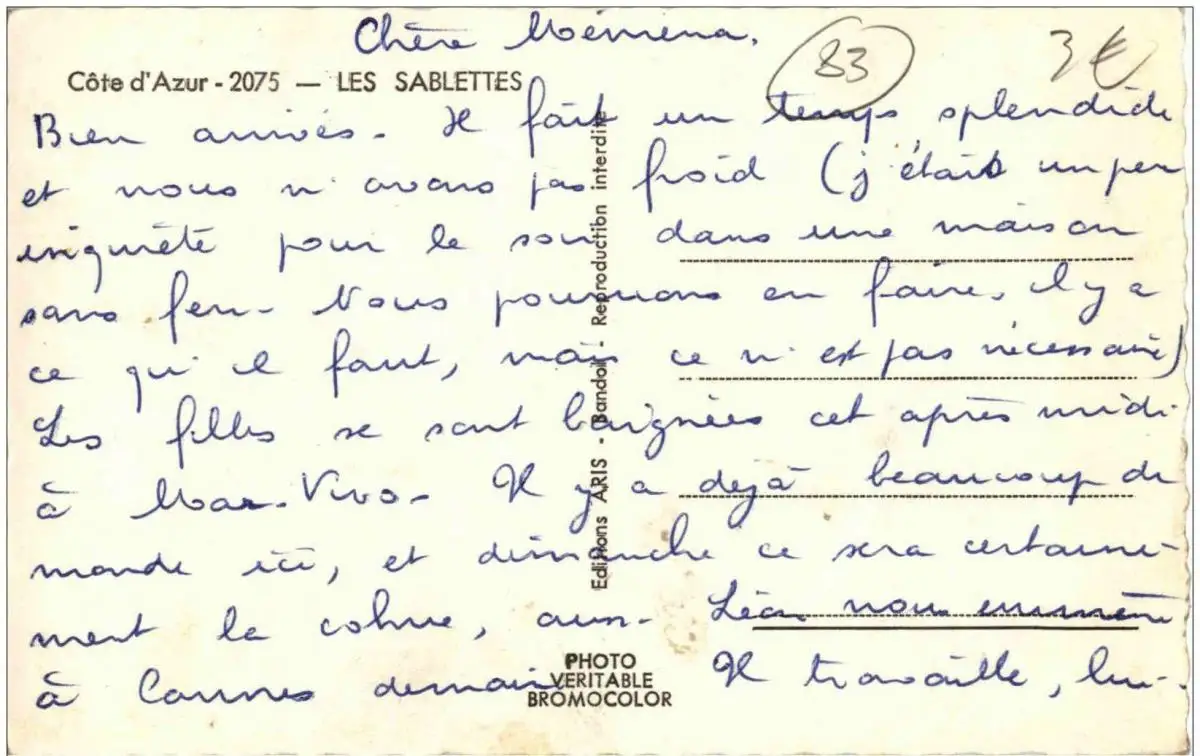 Chère Mémena,
83
3€
Côte d'Azur - 2075 — LES SABLETTES
Bien arrivés. Il fait un temps splendide
et nous n'avons pas froid (j'étais un peu
inquiète pour le soir dans une maison
sans feu. Nous pourrions en faire, il y a
ce qu'il faut, mais ce n'est pas nécessaire)
Les filles se sont baignées cet après midi
à Mar-Vivo. Il y a déjà beaucoup de
monde ici, et dimanche ce sera certaine-
ment la cohue, aussi Léon nous emmène
à Cannes demain. Il travaille, lui.
Editions ARIS - Bandol - Reproduction interdite
PHOTO
VERITABLE
BROMOCOLOR